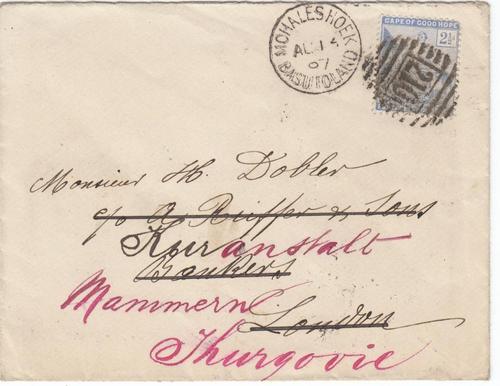 MOHALESHOEK
AU 14
97
BASUTOLAND
CAPE OF GOOD HOPE
2½
Monsieur H. Dobler
c/o A. Rüffer & Sons
Kuranstalt
Bankers
Mammern
London
Thurgovie